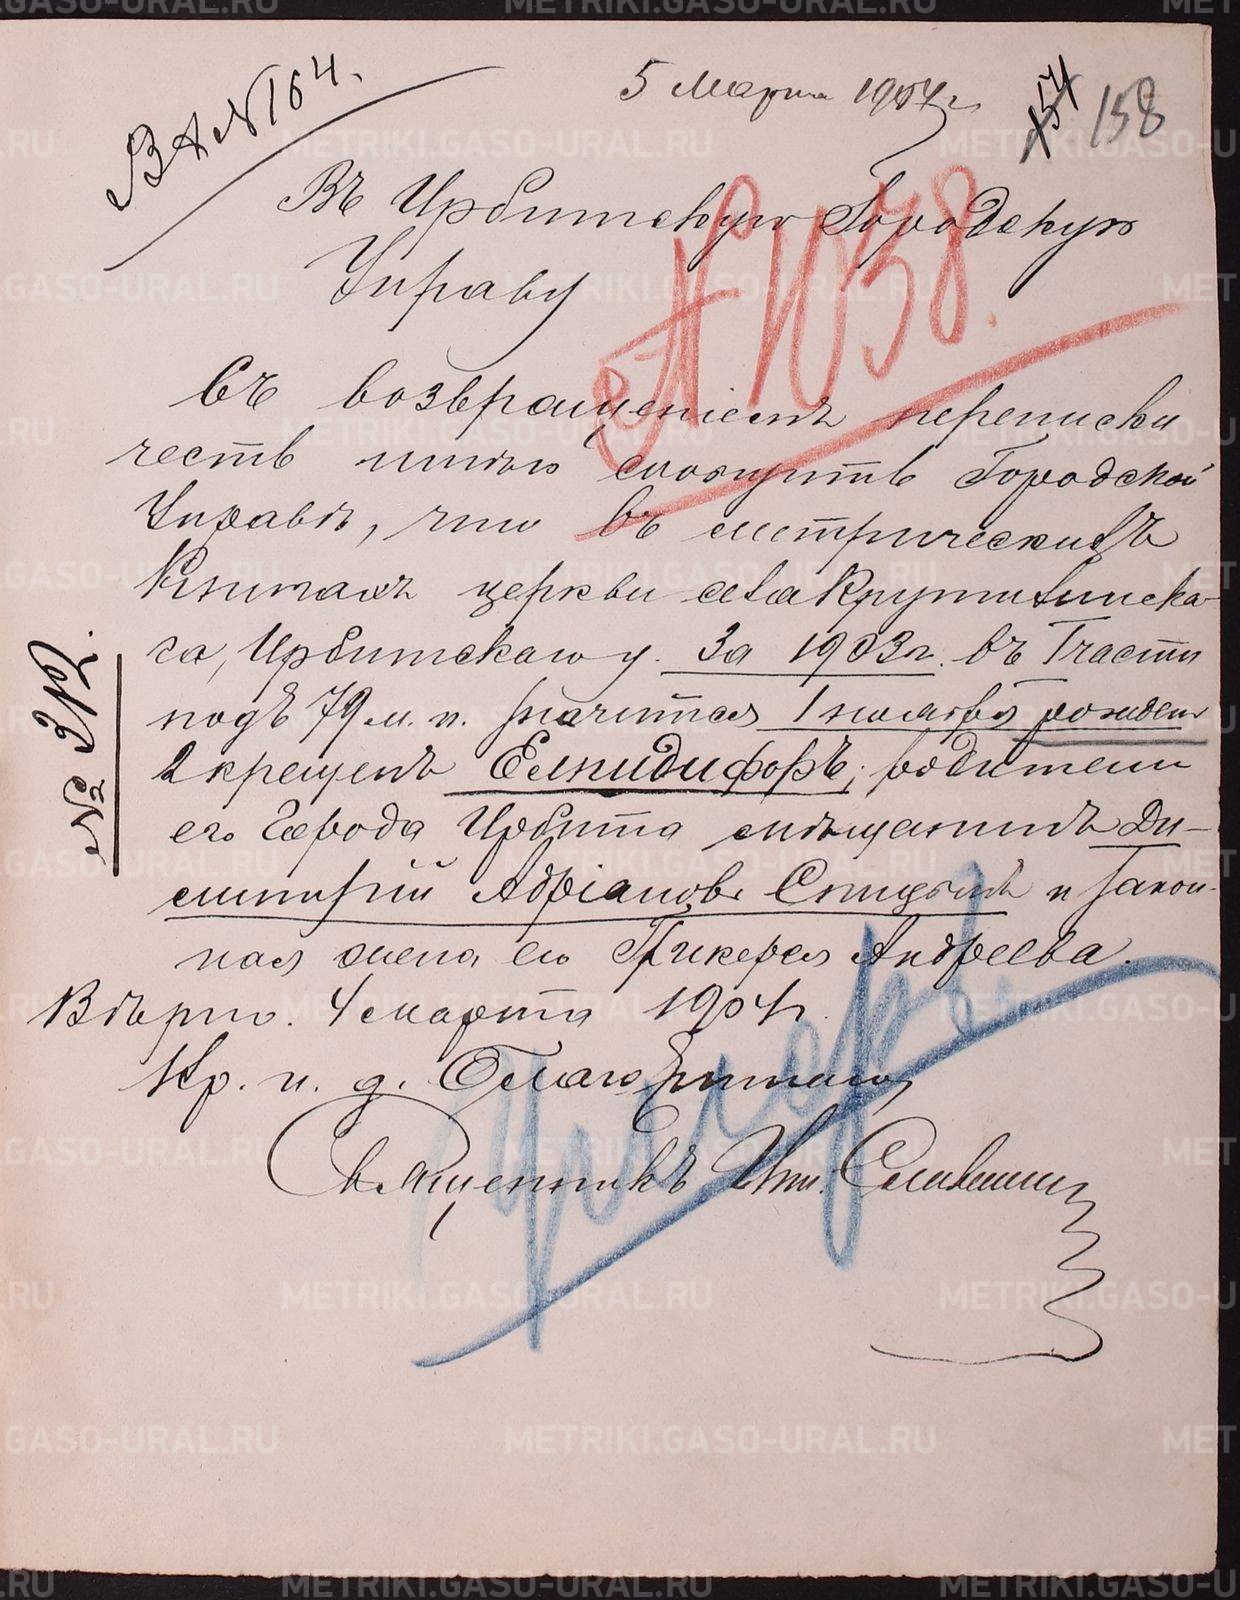 В А № 164.
5 Марта 1904 г.
154 158
Въ Ирбитскую Городскую
Управу
№ 1038.
Съ возвращеніемъ переписки
честь имѣю сообщить Городской
Управѣ, что въ метрическихъ
Книгахъ церкви села
га, Ирбитскаго у. за 1903 г. въ I части
подъ 79 м. п. значится 1 ноября рожден
2 крещенъ Елпидифоръ; родители
его Города Ирбита мѣщанинъ Ди-
митрій Адріановъ Спицынъ и закон-
ная жена его Гликерія Андреева.
Вѣрно. 4 марта 1904 г.
№ 312.
Кр. п. д. Благочиннаго,
Священникъ
METRIKI.GASO-URAL.RU